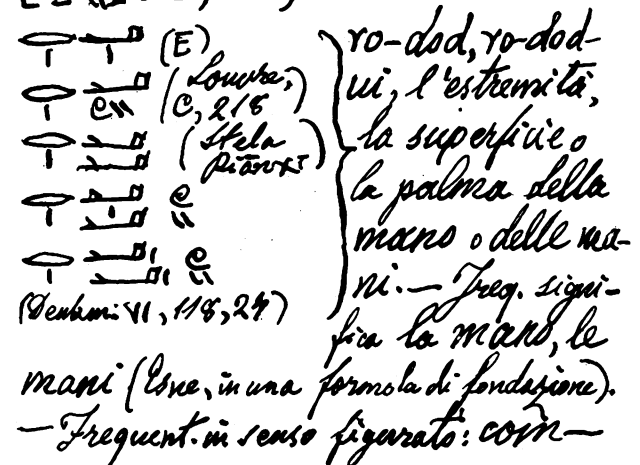 (E)
(Louvre,
C, 218)
(Stela
(Denkm. VI, 118, 24)
ro-dod, ro-dod-
ui, l'estremità,
la superficie o
la palma della
mano o delle ma-
ni. — Freq. signi-
fica la mano, le
mani (Esne, in una formola di fondazione).
— Frequent. in senso figurato: com—